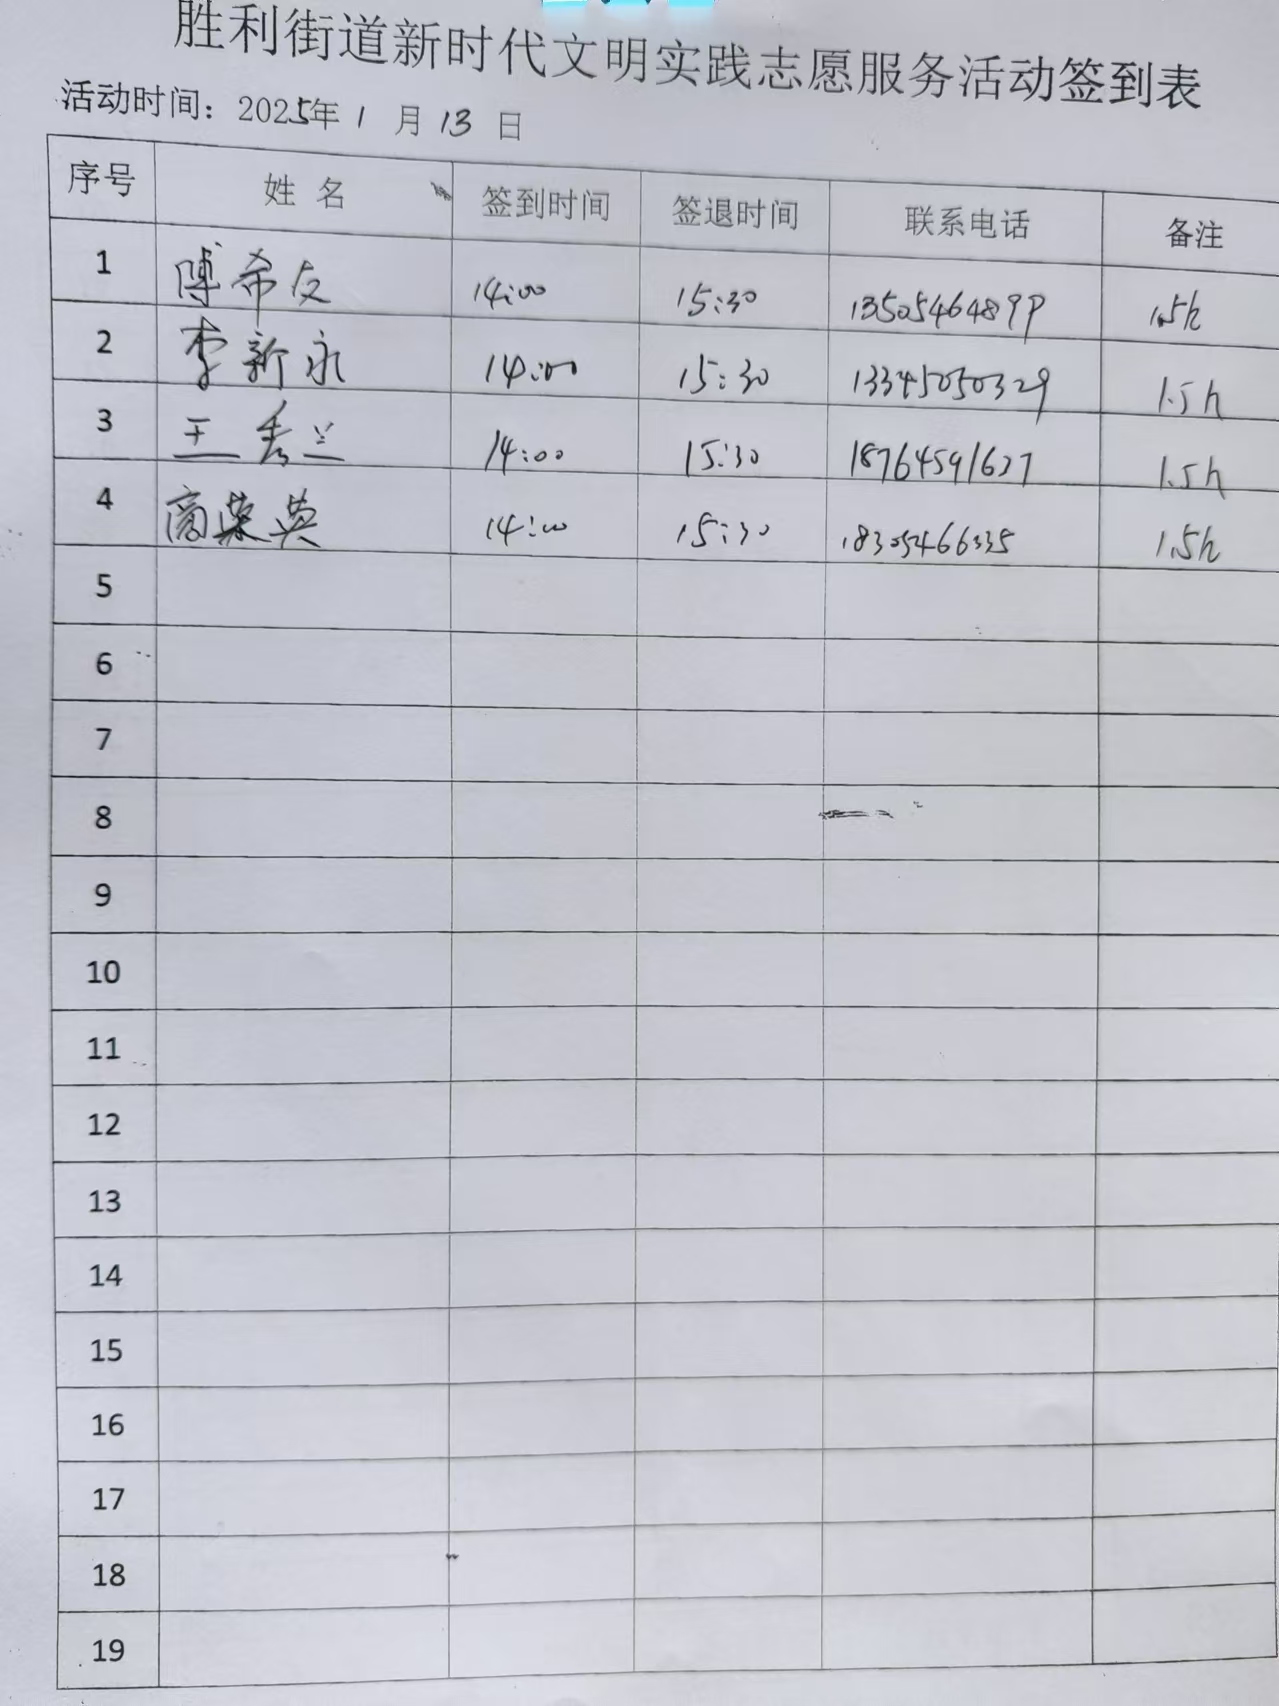 胜利街道新时代文明实践志愿服务活动签到表
活动时间：2025年1月13日
序号 姓名 签到时间 签退时间 联系电话 备注
1 傅希友 14:00 15:30 13505464899 1.5h
2 李新永 14:00 15:30 13345050329 1.5h
3 王秀兰 14:00 15:30 18764591627 1.5h
4 商荣英 14:00 15:30 1.5h
5
6
7
8
9
10
11
12
13
14
15
16
17
18
19